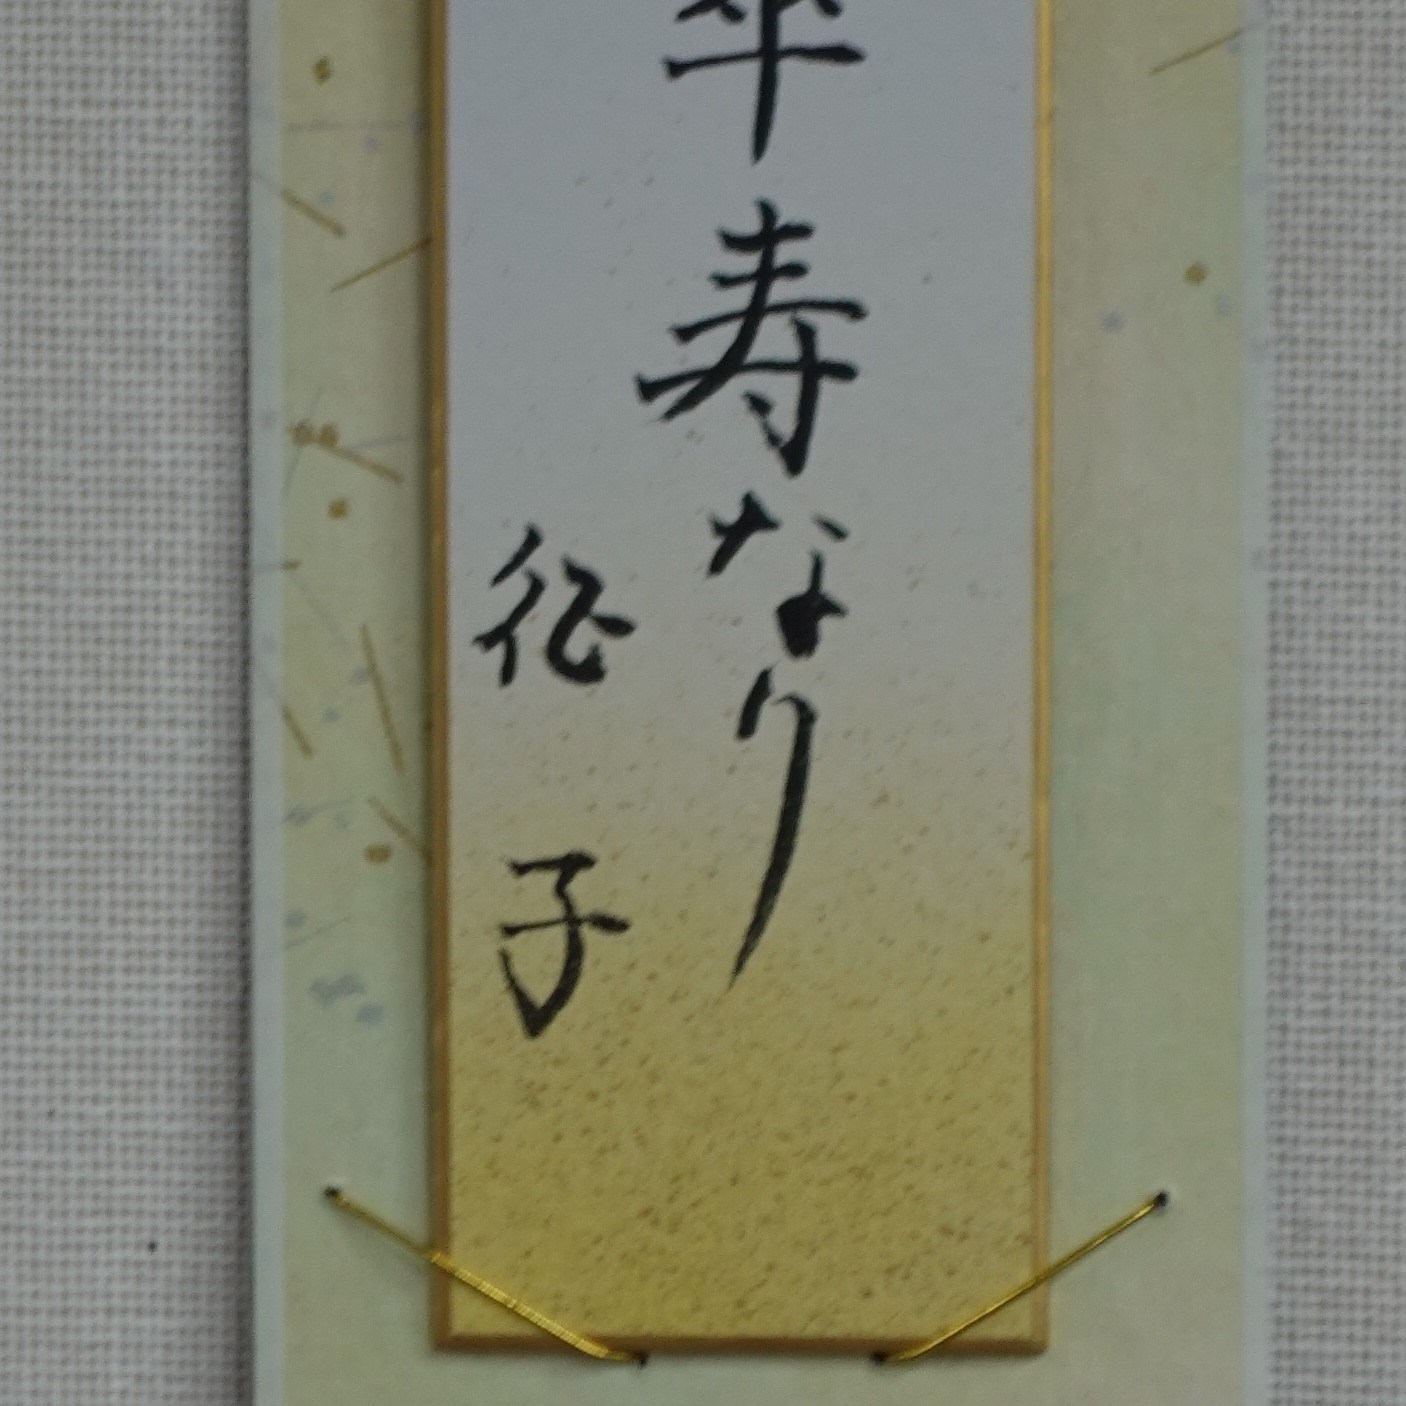 卒寿なり
征子